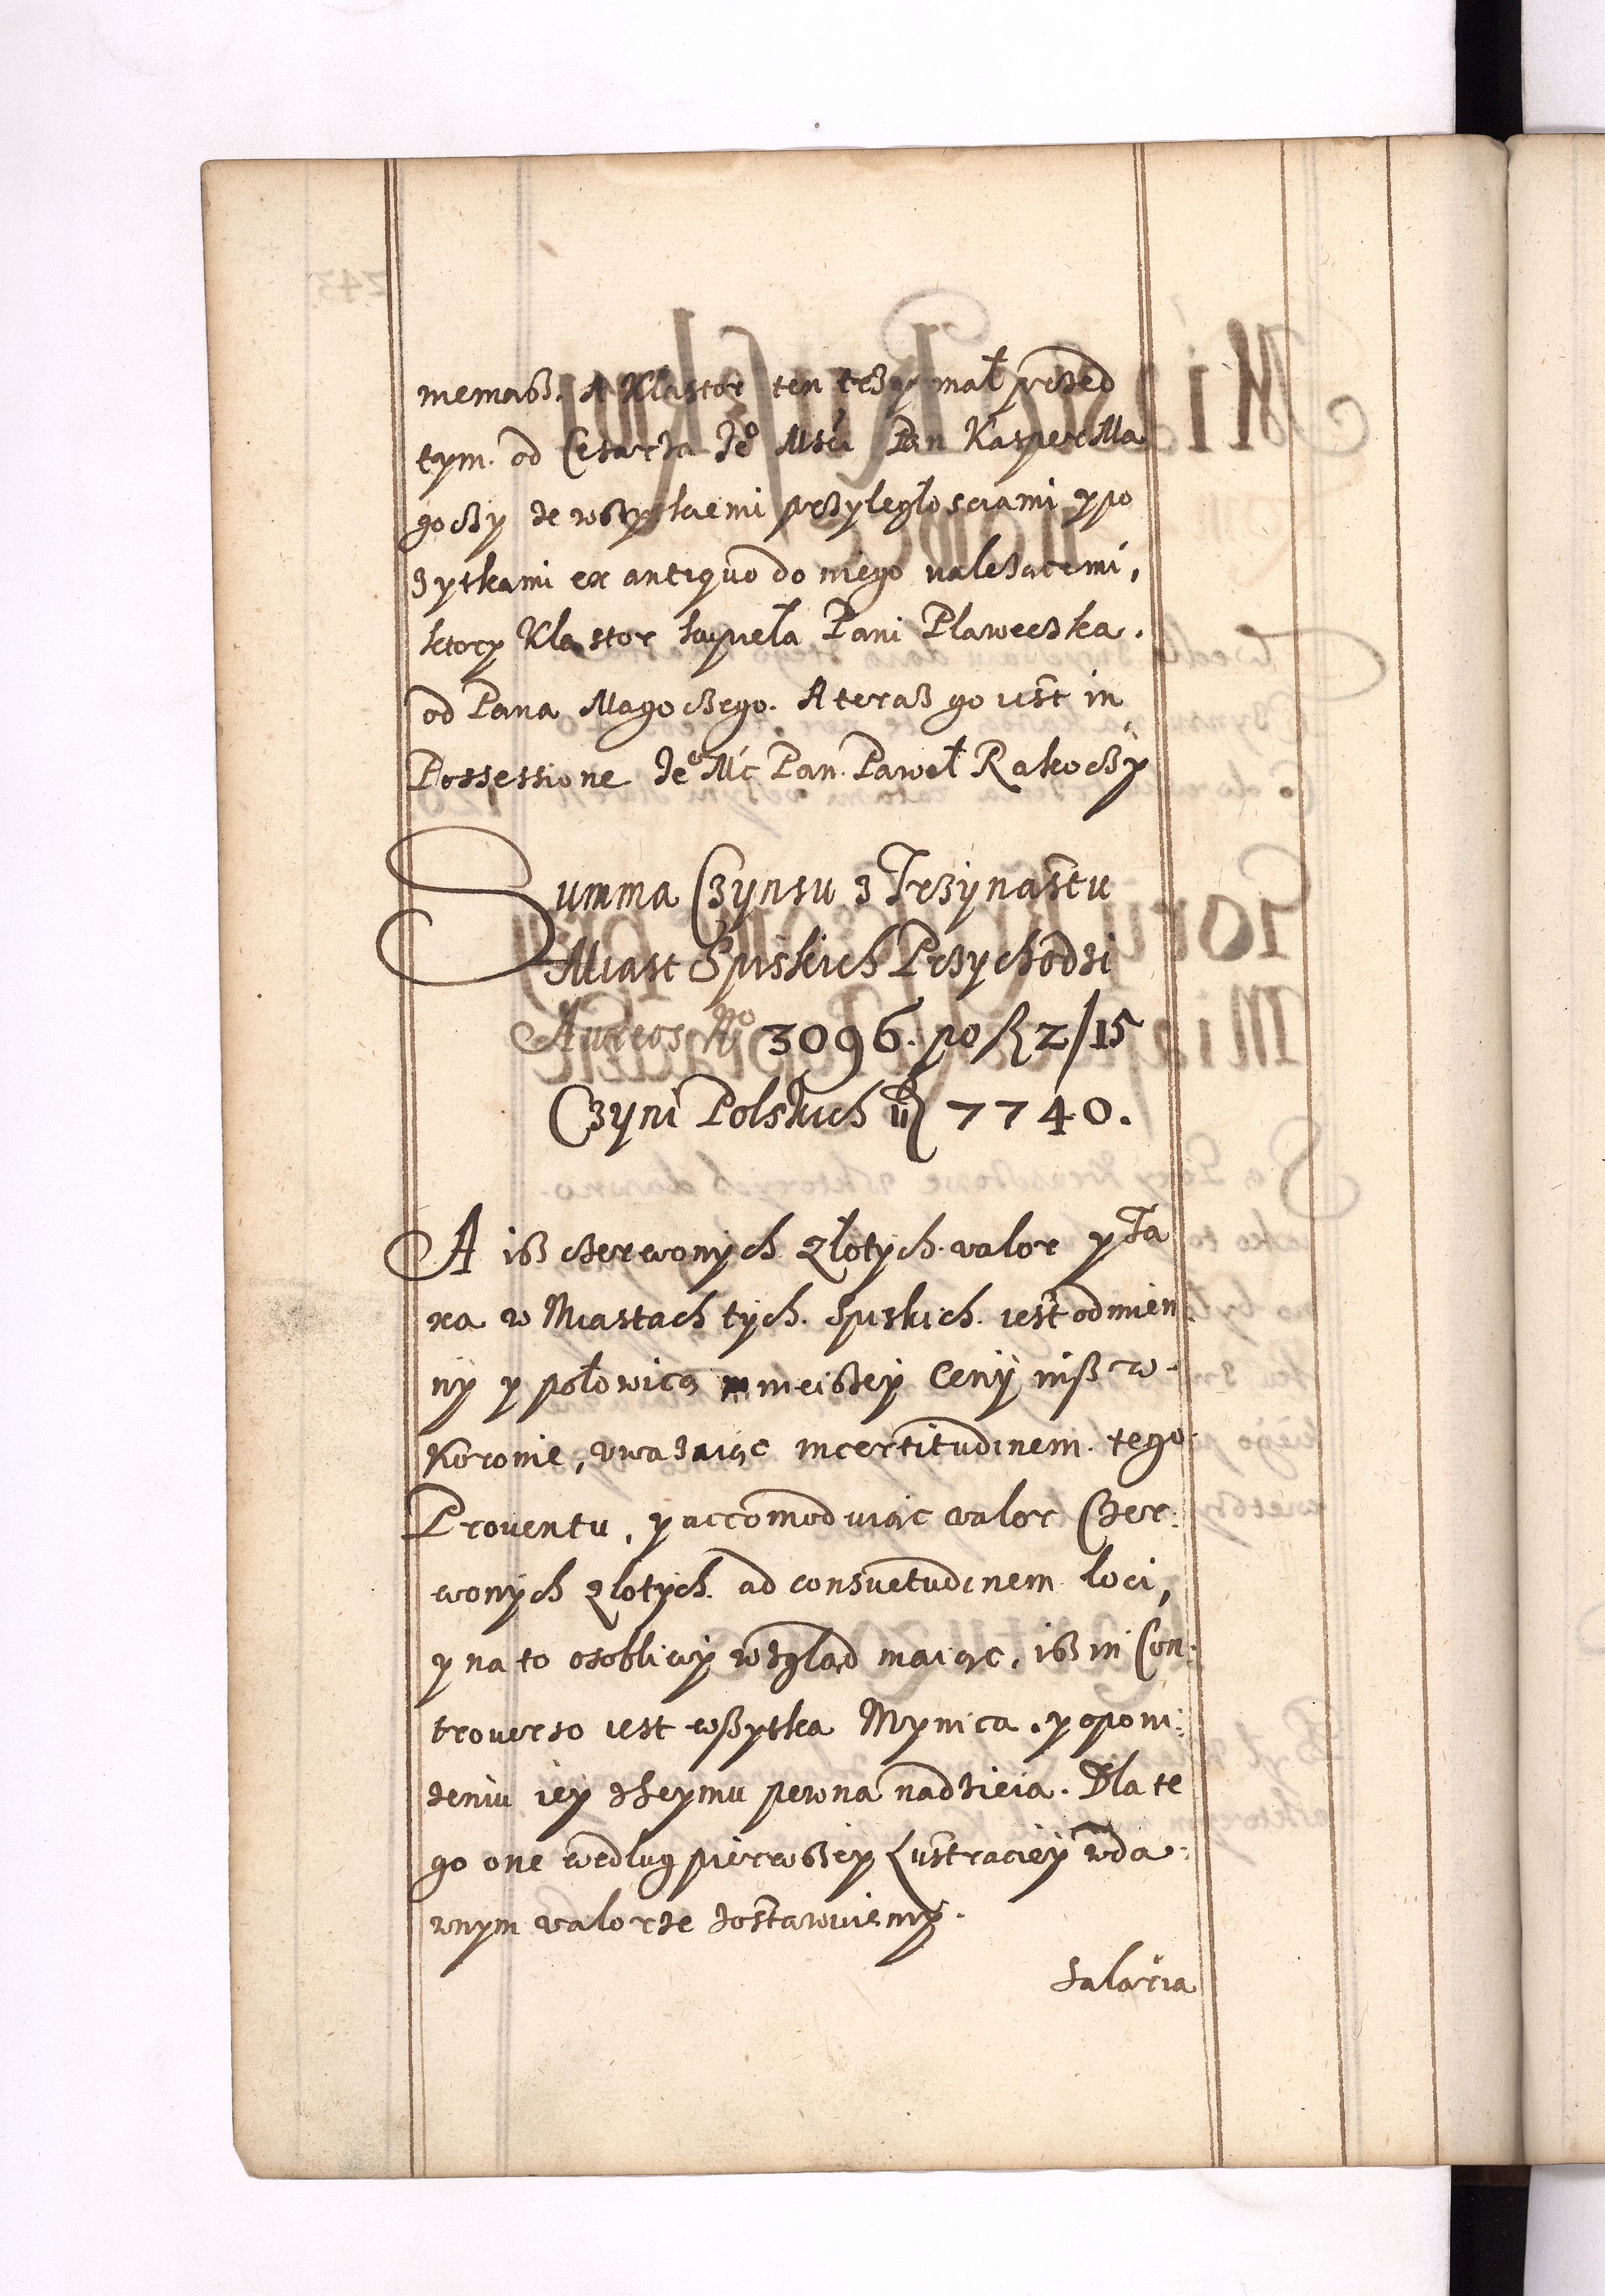 niemasz. A Klastor ten trzymał przed
tym. od Cesarza Je° Msći Pan Kasper Ma
goczy ze wszytkiemi przyległosciami y po
zytkami ex antiquo do niego nalezacemi,
ktory Klastor kupieła Pani Plaweczka.
od Pana Magoczego. A teraz go iest in
Possessione Je° Mć Pan. Paweł Rakoczÿ
Summa Czynsu z Trzÿnastu
Miast Spiskich Przychodzi
Aureos N° 3096. po fl 2/15
Czyni Polskich fl 7740.
A isz czerwonÿch złotÿch valor y Ta
xa w Miastach tÿch. Spiskich. iest odmien
nÿ y połowicą mnieiszeÿ Cenÿ niß w
Koronie, uwazaiąc incertitudinem tego
Proventu, y accomoduiąc valor Czer:
wonÿch złotÿch. ad consuetudinem loci,
y na to osobliwÿ wzgląd maiąc, isz in Con:
troverso iest wßytka Mynica, y o poni:
zeniu ieÿ zSeymu pewna nadzieia. Dla te
go one wedlug pierwszeÿ Lustracieÿ w da:
wnym valorze zostawuiemy.
Salaria